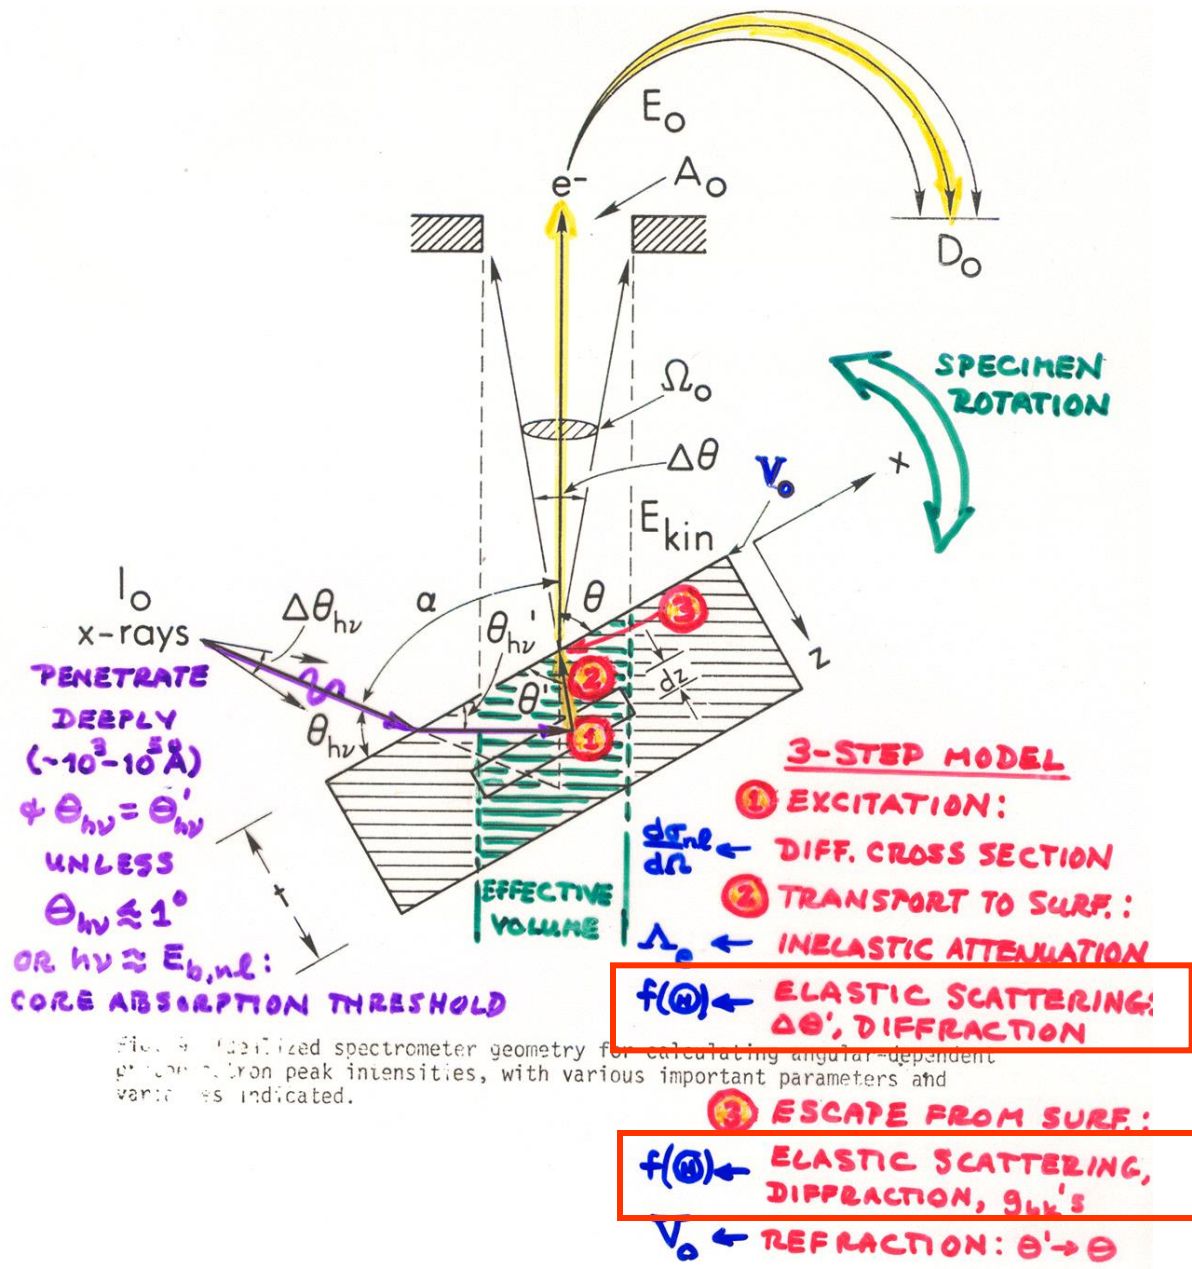 E₀
e⁻
A₀
D₀
Ω₀
SPECIMEN
ROTATION
Δθ
V₀
x
E_kin
I₀
x-rays
Δθ_hν
α
θ_hν'
θ
3
z
PENETRATE
DEEPLY
(~10³-10⁵Å)
θ_hν
θ'
2
dz
1
& Θ_hν = Θ'_hν
UNLESS
Θ_hν ≲ 1°
OR hν ≈ E_b,nl:
CORE ABSORPTION THRESHOLD
t
EFFECTIVE
VOLUME
3-STEP MODEL
① EXCITATION:
dσ_nl/dΩ ← DIFF. CROSS SECTION
② TRANSPORT TO SURF.:
Λ_e ← INELASTIC ATTENUATION
f(Θ) ← ELASTIC SCATTERING:
Δθ', DIFFRACTION
spectrometer geometry for calculating angular-dependent
peak intensities, with various important parameters and
indicated.
③ ESCAPE FROM SURF.:
f(Θ) ← ELASTIC SCATTERING,
DIFFRACTION, g_hk's
V₀ ← REFRACTION: θ' → θ